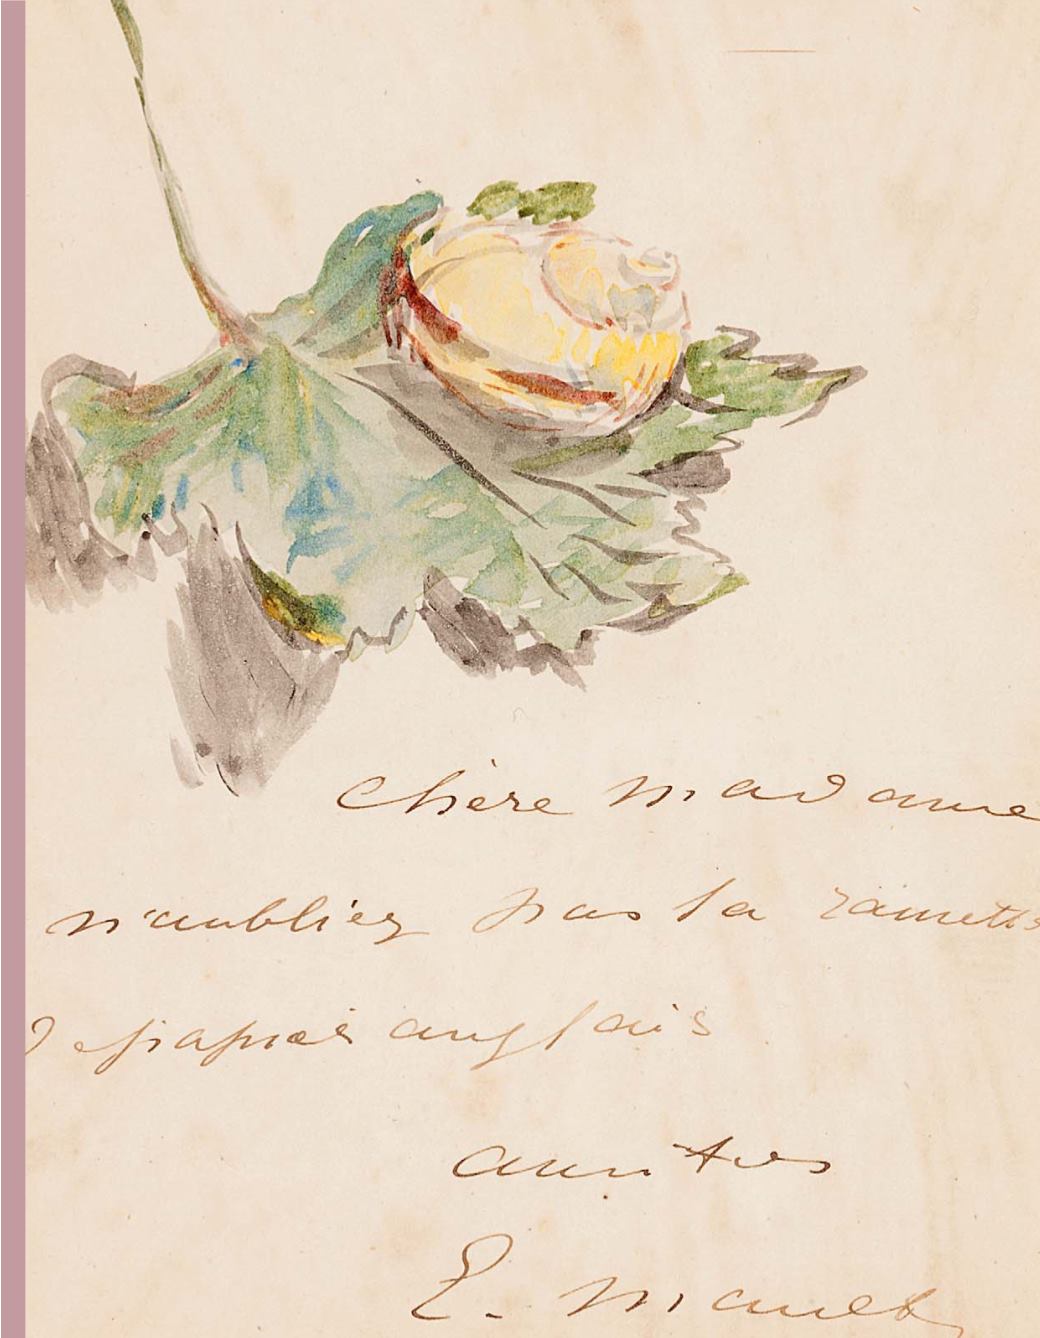 chère madame
n'oubliez pas la ramette
de papier anglais
amitiés
E. Manet